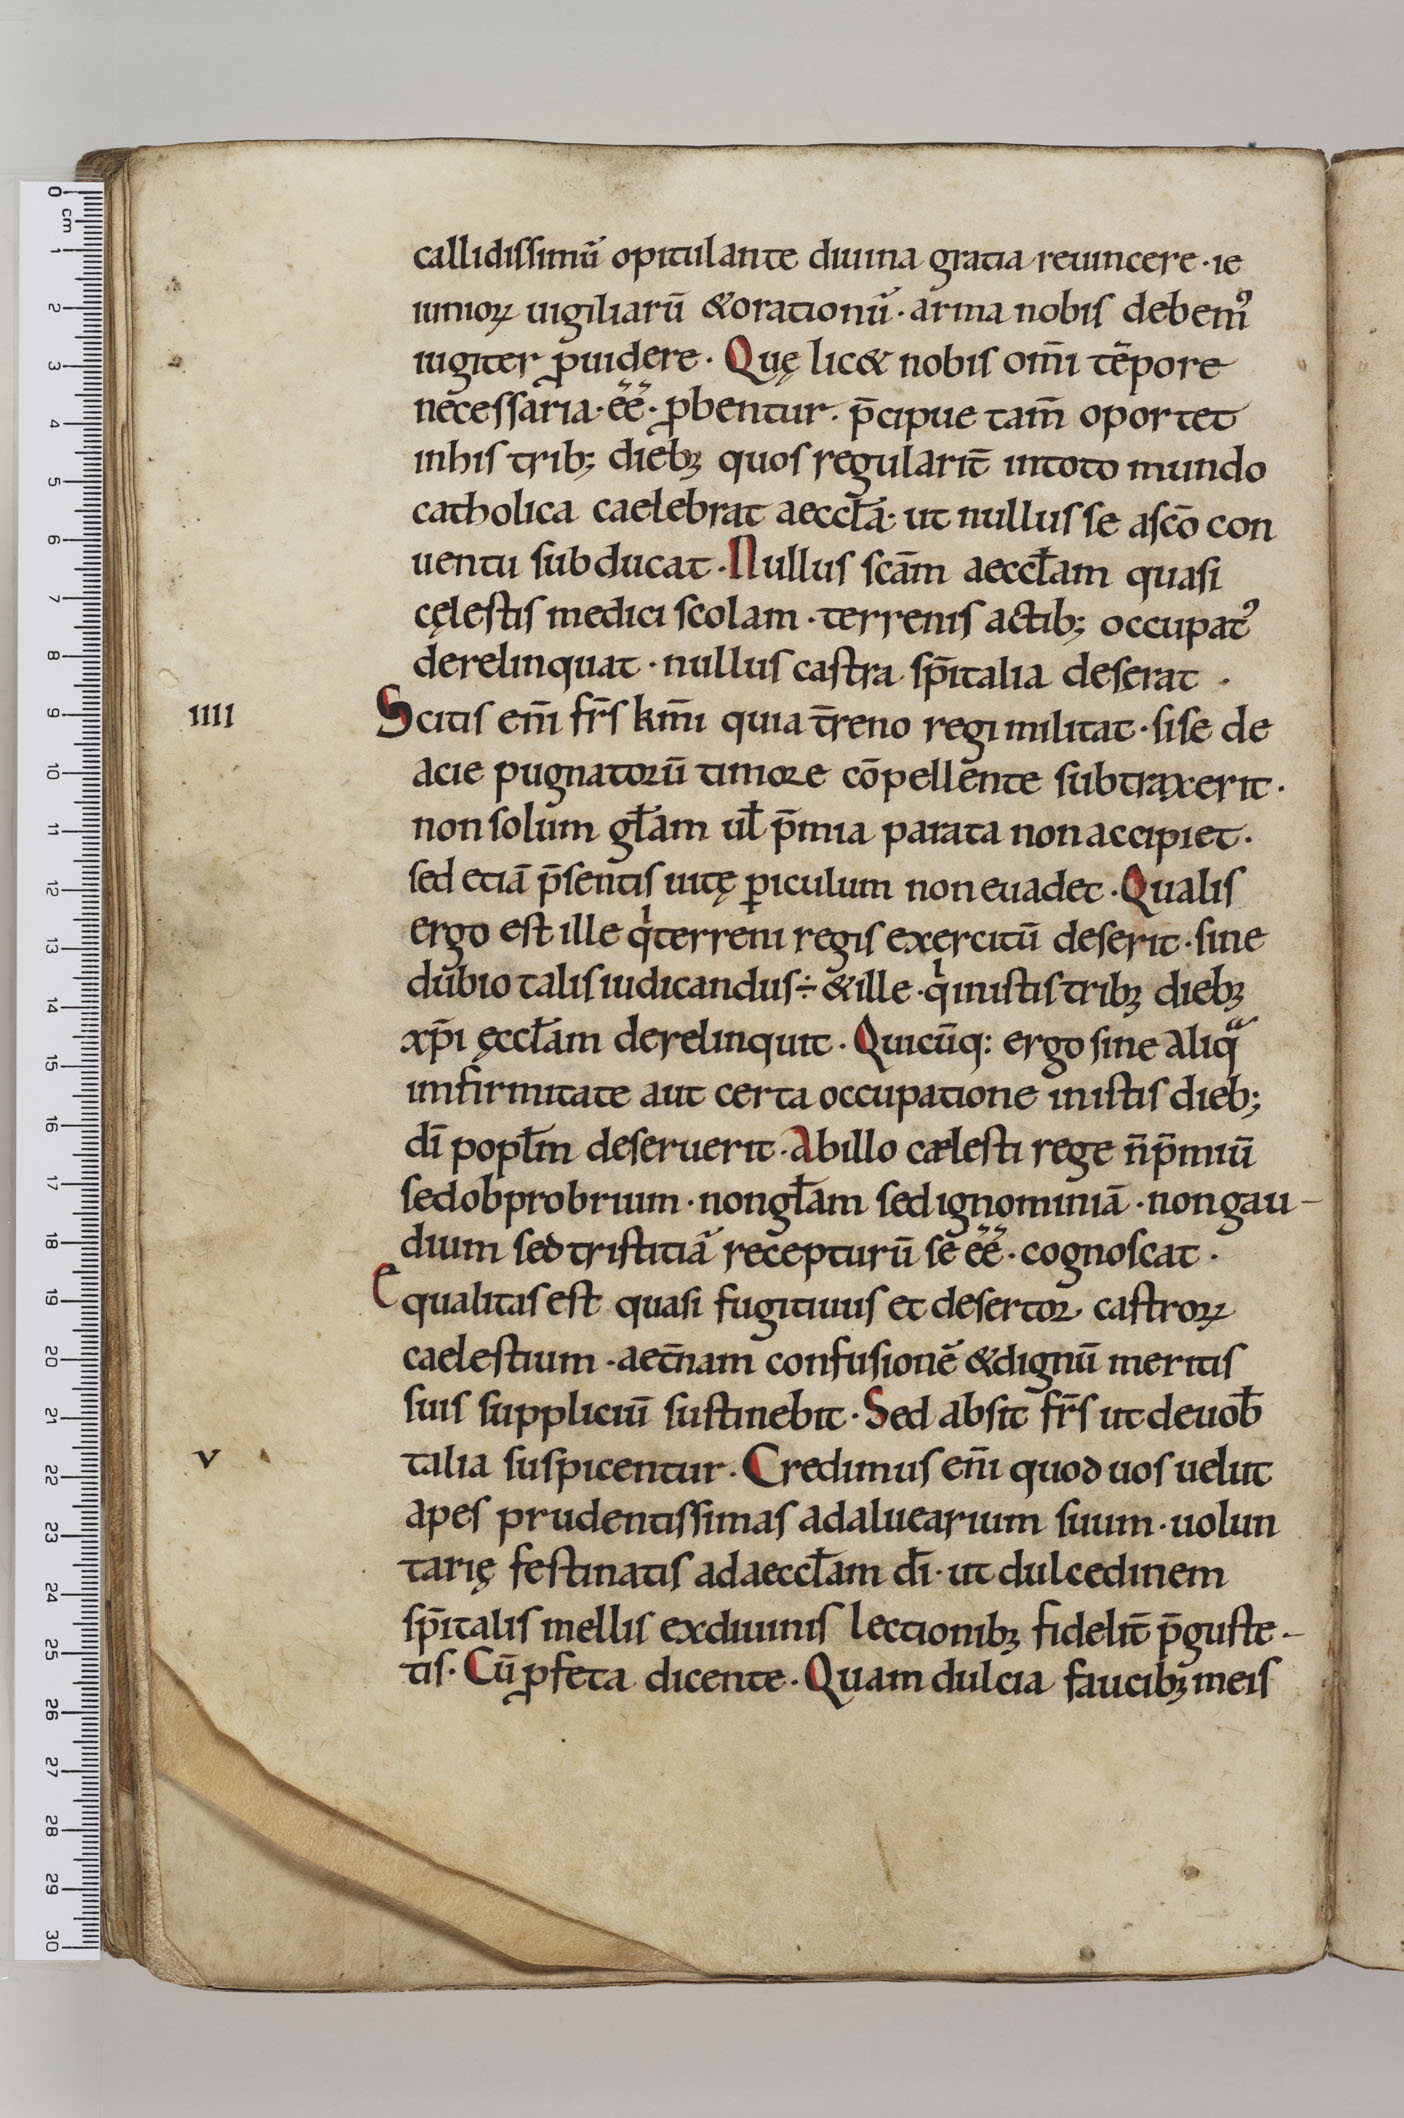 callidissimū opitulante diuina gratia reuincere · ie
iunioꝝ uigiliarū &orationū · arma nobis debemꝰ
iugiter ꝓuidere · Quę lic& nobis om̅i te̅pore
necessaria · e̅e̅ · ꝓbentur · p̅cipue tam̅ oportet
inhis trib; diebꝫ quos regularit̅ intoto mundo
catholica caelebrat aeccłā · ut nullus se asco̅ con
uentu subducat · Nullus sca̅m aeccłam quasi
cęlestis medici scolam · terrenis actib; occupatꝰ
derelinquat · nullus castra sp̅italia deserat ·
IIII
Scitis em̅ fr̅s km̅i quia t̅reno regi militat · sise de
acie pugnatorū timore co̅pellente subtraxerit ·
non solum głam uł p̅mia parata non accipiet ·
sed etia̅ p̅sentis uitę ꝑiculum non euadet · Qualis
ergo est ille qͥterreni regis exercitū deserit · sine
dubio talis iudicandus÷ &ille · qͥ inistis tribꝫ diebꝫ
xp̅i ęccłam derelinquit · Quicu̅q: ergo sine aliqᵃ
imfirmitate aut certa occupatione inistis dieb;
di̅ popłm deseruerit · Abillo cælesti rege n̅p̅miu̅
sedobprobrium · nongłam sed ignominia̅ · non gau-
dium sed tristitia̅ recepturū se e̅e̅ · cognoscat ·
E qualitas est quasi fugitiuus et desertor castroꝝ
caelestium · aet̅nam confusione̅ &dignū meritis
suis suppliciu̅ sustinebit · Sed absit fr̅s ut deuob̅
V
talia suspicentur · Credimus em̅ quod uos uelut
apes prudentissimas adaluearium suum · uolun
tarię festinatis adaeccłam di̅ · ut dulcedinem
sp̅italis mellis exdiuinis lectionibꝫ fidelit̅ p̅guste-
tis · Cu̅ ꝓfeta dicente · Quam dulcia faucibꝫ meis